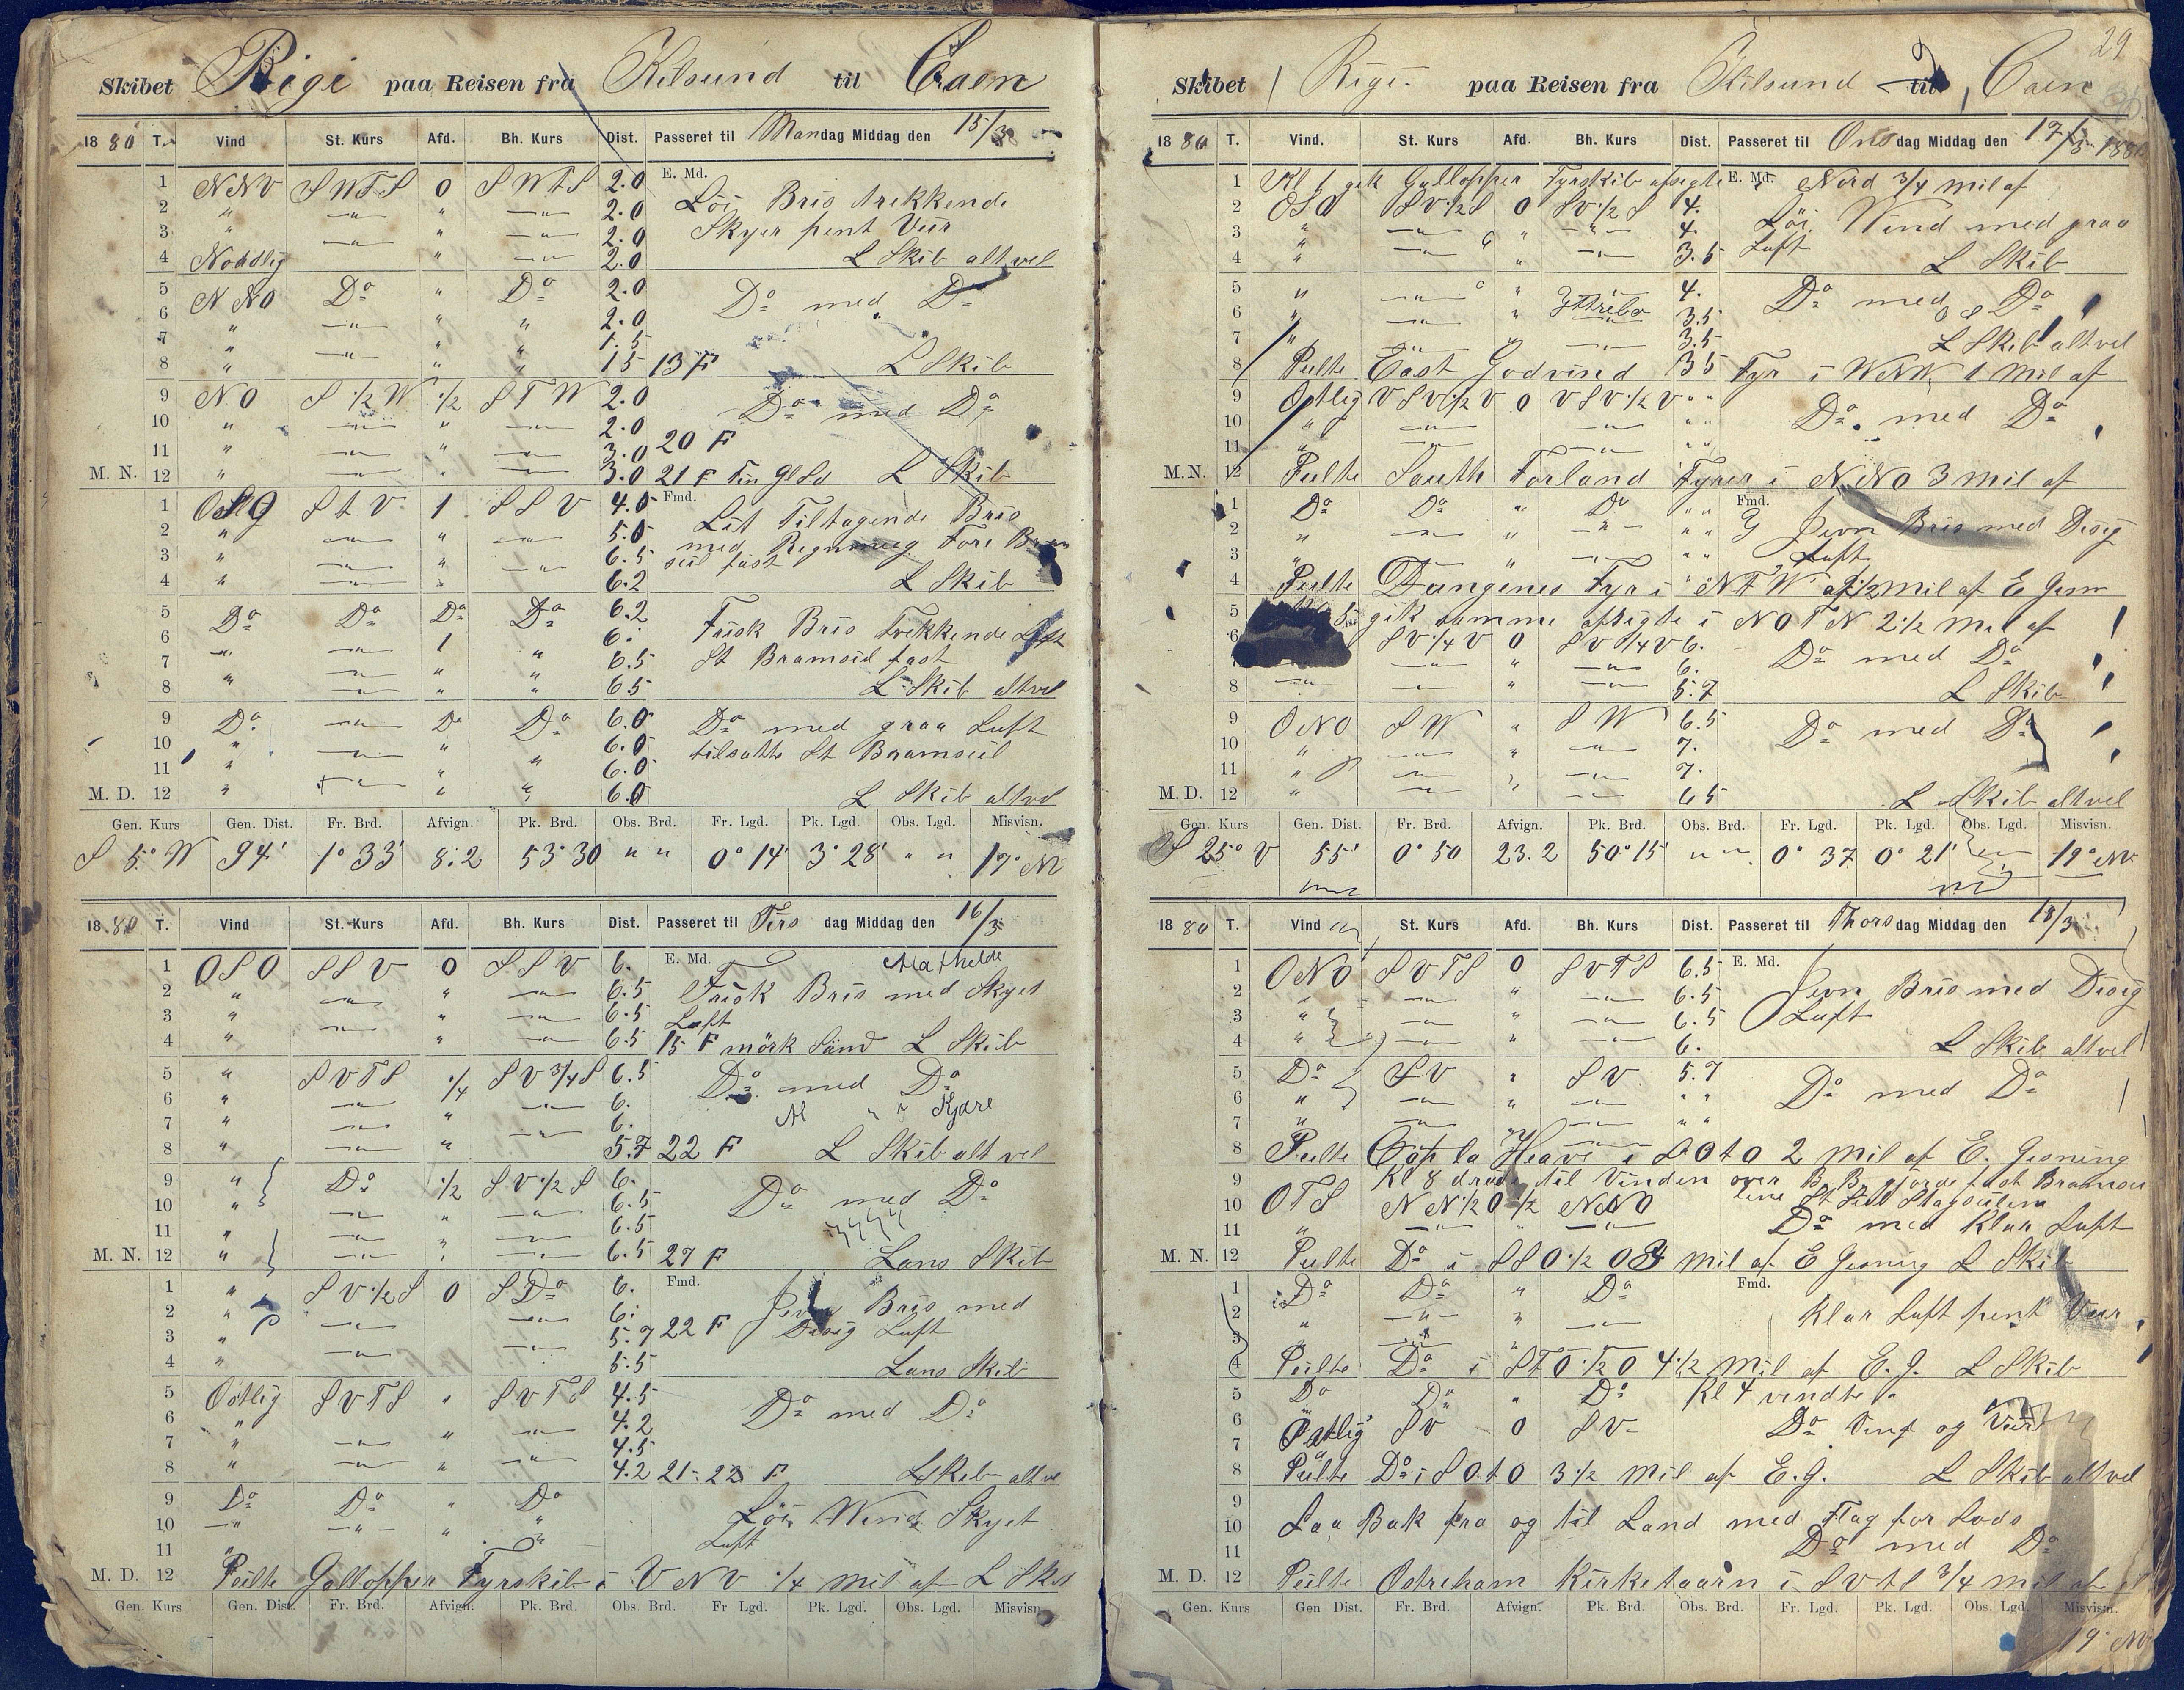 Skibet Rigi paa Reisen fra Kilsund til Caen
1880 T. Vind St. Kurs Afd. Bh. Kurs Dist. Passeret til Mandag Middag den 15/3
1 NNV SWTS 0 SWTS 2.0 E. Md.
2 " —"— " —"— 2.0 Löi Bris trekkende
3 " —"— " —"— 2.0 Skyer pent Veir
4 Nordlig " —"— 2.0 L Skib altvel
5 NNO Do " Do 2.0 Do med Do
6 " —"— " " 2.0
7 " —"— " " 1.5
8 " —"— " " 15 13 F L Skib
9 NO S 1/2 W 1/2 STW 2.0 Do med Do
10 " —"— " —"— 2.0
11 " —"— " —"— 3.0 20 F
M. N. 12 " —"— " —"— 3.0 21 F L Skib
1 StV 1 SSV 4.0 Fmd.
2 " —"— " —"— 5.0 Tiltagende Bris
3 " —"— " —"— 6.5 med
4 " —"— " 6.2 seil fast L Skib
5 Do Do Do Do 6.2
6 " —"— 1 " 6. Frisk Bris Trekkende Luft
7 " " " 6.5 St Bramseil fast
8 " —"— " " 65 L Skib altvel
9 Do —"— Do Do 6.0 Do med graa Luft
10 " —"— " 6.0 tilsatte St Bramseil
11 " —"— " " 6.0
M. D. 12 " —"— " " 6.0 L Skib altvel
Gen. Kurs Gen. Dist. Fr. Brd. Afvign. Pk. Brd. Obs. Brd. Fr. Lgd. Pk. Lgd. Obs. Lgd. Misvisn.
S 5° W 94' 1° 33' 8.2 53° 30 " " 0° 14' 3° 28' " " 17° N
1880 T. Vind St. Kurs Afd. Bh. Kurs Dist. Passeret til Tirsdag Middag den 16/3
1 OSO SSV 0 SSV 6. E. Md. Mathelde
2 " —"— " —"— 6.5 Frisk Bris med Skyet
3 " —"— " —"— 6.5 Luft
4 " —"— " —"— 6.5 15 F mörk Sand L Skib
5 " SVTS 1/4 SV 3/4 S 6.5 Do med Do
6 " —"— " —"— 6.
7 " —"— " —"— 6.
8 " —"— " 5.7 22 F L Skib alt vel
9 " Do 1/2 SV 1/2 S 6.
10 " —"— " —"— 6.5 Do med Do
11 " —"— " —"— 6.5
M. N. 12 " —"— " —"— 6.5 27 F Lans Skib
1 " SV 1/2 S 0 SDo 6. Fmd.
2 " —"— —"— 6. Jevn Bris med
3 " —"— 5.7 22 F Disig Luft
4 " 5.5 Lans Skib
5 Östlig SVTS " SVTS 4.5
6 " —"— 4.2 Do med Do
7 " —"— " —"— 4.5
8 " —"— " —"— 4.2 21-22 F L Skib alt vel
9 Do Do " Do
10 —"— —"— " " Löi Wend Skyet
11 " Luft
M. D. 12 Peilte Gallopper Fyrskib i VNV 1/4 mil af L Skib
Gen. Kurs Gen. Dist. Fr. Brd. Afvign. Pk. Brd. Obs. Brd. Fr Lgd. Pk. Lgd. Obs. Lgd. Misvisn.
29
Skibet Rigi paa Reisen fra Kilsund til Caen
1880 T. Vind. St. Kurs Afd. Bh. Kurs Dist. Passeret til Onsdag Middag den 17/3 1880
1 Kl 1 gik Gallopper Fyrskib afsigte E. Md. i Nord 3/4 mil af
2 OSO SV 1/2 S 0 SV 1/2 S 4.
3 " —"— " —"— 4. Löi Wind med graa
4 " —"— " —"— 3.5 Luft L Skib
5 " —"— " 4. Do med Do
6 " —"— " —"— 3.5
7 " —"— —"— 3.5 L Skib altvel
8 Peilte East Godvind 35 Fyr i WNW, 1 mil af
9 Östlig VSV 1/2 V 0 VSV 1/2 V " "
10 " —"— —"— Do med Do
11 " —"— —"— " "
M.N. 12 Peilte South Forland Fyrer i NNO 3 mil af
1 Do Do " Do " " Fmd.
2 " —"— " —"— " " Jevn Bris med Disig
3 " —"— " —"— " " Luft
4 Peilte Dungenes Fyr i NTW 2 1/2 mil af E Gisn
5 gik samme afsigte i NOTN 2 1/2 mil af
6 SV 1/4 V 0 SV 1/4 V 6.
7 —"— " —"— 6. Do med Do
8 —"— —"— " —"— 5.7 L Skib
9 ONO SW " SW 6.5
10 " —"— " —"— 7. Do med Do
11 " —"— " —"— 7.
M. D. 12 " —"— " —"— 65 L Skib altvel
Gen. Kurs Gen. Dist. Fr. Brd. Afvign. Pk. Brd. Obs. Brd. Fr. Lgd. Pk. Lgd. Obs. Lgd. Misvisn.
S 25° V 55' 0° 50 23.2 50° 15' " " 0° 37 0° 21' 19° N
1880 T. Vind St. Kurs Afd. Bh. Kurs Dist. Passeret til Thorsdag Middag den 18/3
1 ONO SVTS 0 SVTS 6.5 E. Md.
2 " —"— " —"— 6.5 Jevn Bris med Disig
3 " —"— " —"— 6.5 Luft
4 " —"— " —"— 6. L Skib altvel
5 Do SV " SV 5.7
6 " —"— " —"— " " Do med Do
7 " —"— " —"— " "
8 Peilte Cap la Heave i SOtO 2 mil af E. Gisning
9 Kl 8 til Vinden over B.B. gjorde fast Bramsei
10 OTS NN 1/2 O 1/2 NNO
11 " —"— " —"— Do med Klar Luft
M. N. 12 Peilte Do i SSO 1/2 O mil af E Gisning L Skib
1 Do Do " Do Fmd.
2 " —"— " —"— Klar Luft pent Veir
3 " —"— "
4 Peilte Do i STO 1/2 O 4 1/2 mil af E. G. L Skib
5 Do Do " Do Kl 4 vendte
6 Östlig SV 0 SV Do Vind og Veir
7
8 Peilte Do i SOtO 3 1/2 mil af E. G. L Skib altvel
9
10 Laa Bak fra og til Land med Flag for Lods
11 Do med Do
M. D. 12 Peilte Ostreham Kirketaarn i SVtS 3/4 mil af
Gen. Kurs Gen Dist. Fr. Brd. Afvign. Pk. Brd. Obs. Brd. Fr. Lgd. Pk. Lgd. Obs. Lgd. Misvisn.
19° N